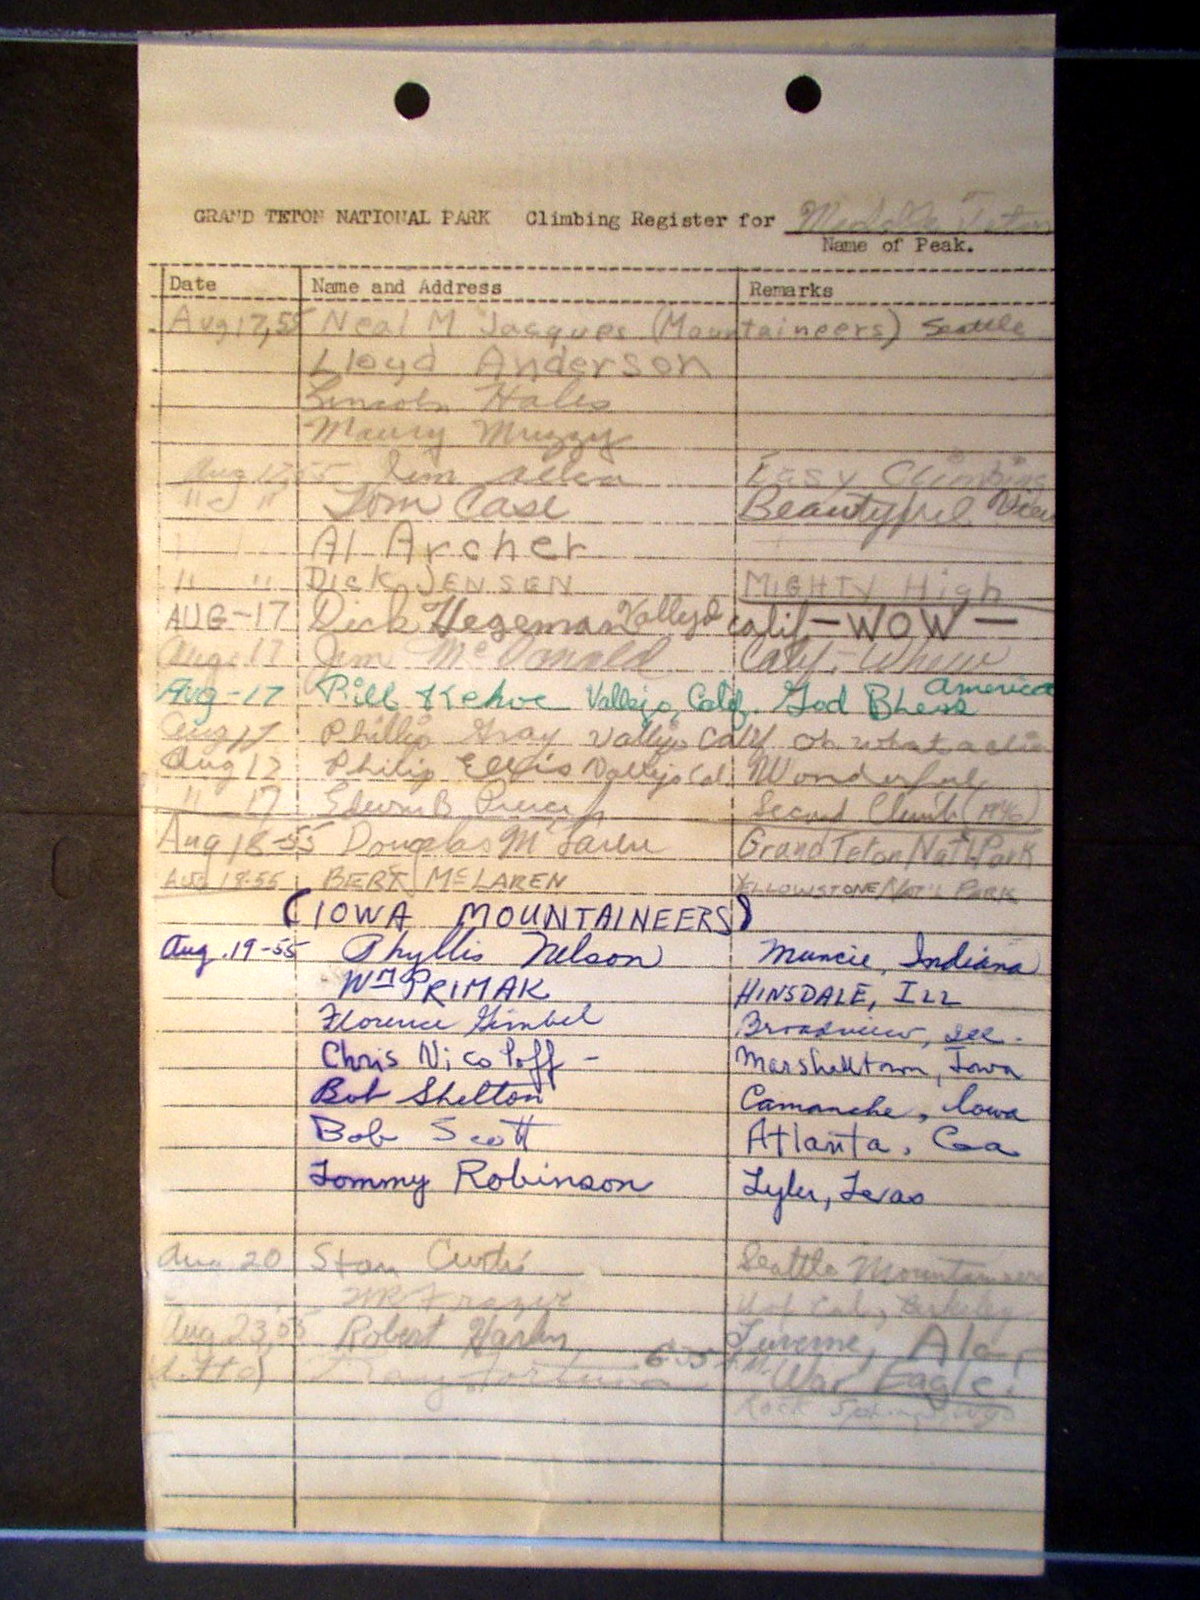 GRAND TETON NATIONAL PARK Climbing Register for Middle Teton
Name of Peak.
Date Name and Address Remarks
Aug 17, 55 Neal M Jacques (Mountaineers) Seattle
Lloyd Anderson
Lincoln Hales
Maury Muzzy
Aug 17, 55 Jim Allen Easy Climbing
" " Tom Case Beautyful View
Al Archer
" " DICK JENSEN MIGHTY High
AUG-17 Dick Hegeman Vallejo Calif - WOW -
Aug. 17 Jim McDonald Calif. - Whew
Aug-17 Bill Kehoe Vallejo, Calif. God Bless America
Aug 17 Phillip Gray Vallejo Calif Oh what a
Aug 17 Philip Ellis Vallejo Cal. Wonderful
" 17 Edwin B. Second Climb (1946)
Aug 18-55 Douglas McLaren Grand Teton Nat'l Park
AUG 18-55 BERT McLAREN YELLOWSTONE NAT'L PARK
(IOWA MOUNTAINEERS)
Aug. 19-55 Phyllis Nelson Muncie, Indiana
Wm PRIMAK HINSDALE, ILL
Florence Gimbel Broadview, Ill.
Chris Nicoloff - Marshalltown, Iowa
Bob Shelton Camanche, Iowa
Bob Scott Atlanta, Ga
Tommy Robinson Tyler, Texas
Aug. 20 Stan Curtis Seattle Mountaineers
Frazer U of Cal., Berkeley
Aug 23, 55 Robert Luverne, Ala.
War Eagle!
Rock Springs, Wyo